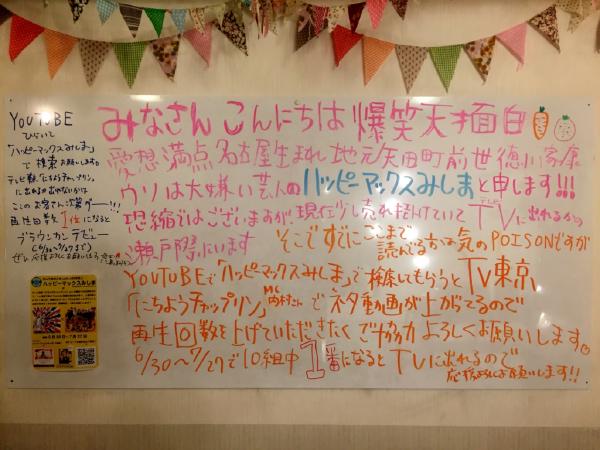 YOUTUBE
ひらいて
「ハッピーマックスみしま」
で検索お願いします。
テレビ東「にちようチャップリン」
に出れるか出れないかは
このお客さん次第ゲー…!!!
再生回数を1位になると
ブラウンカンデビュー
(6/30〜7/27まで)
みなさん こんにちは 爆笑天才面白
愛想満点 名古屋生まれ 地元矢田町前世徳川家康
ウソは大嫌い芸人のハッピーマックスみしまと申します!!!
恐縮ではございますが、現在少し売れ掛けていてTVに出れるかの
テレビ
瀬戸際にいます
そこですでにここまで
読んでるが気のPOISONですが
YOUTUBEで「ハッピーマックスみしま」で検索してもらうとTV東京
「にちようチャップリン」MC内村さんでネタ動画が上がってるので
再生回数を上げていただきたくご協力よろしくお願いします
6/30〜7/27で10組中1番になるとTVに出れるので
応援よろしくお願いします!!
ハッピーマックスみしま